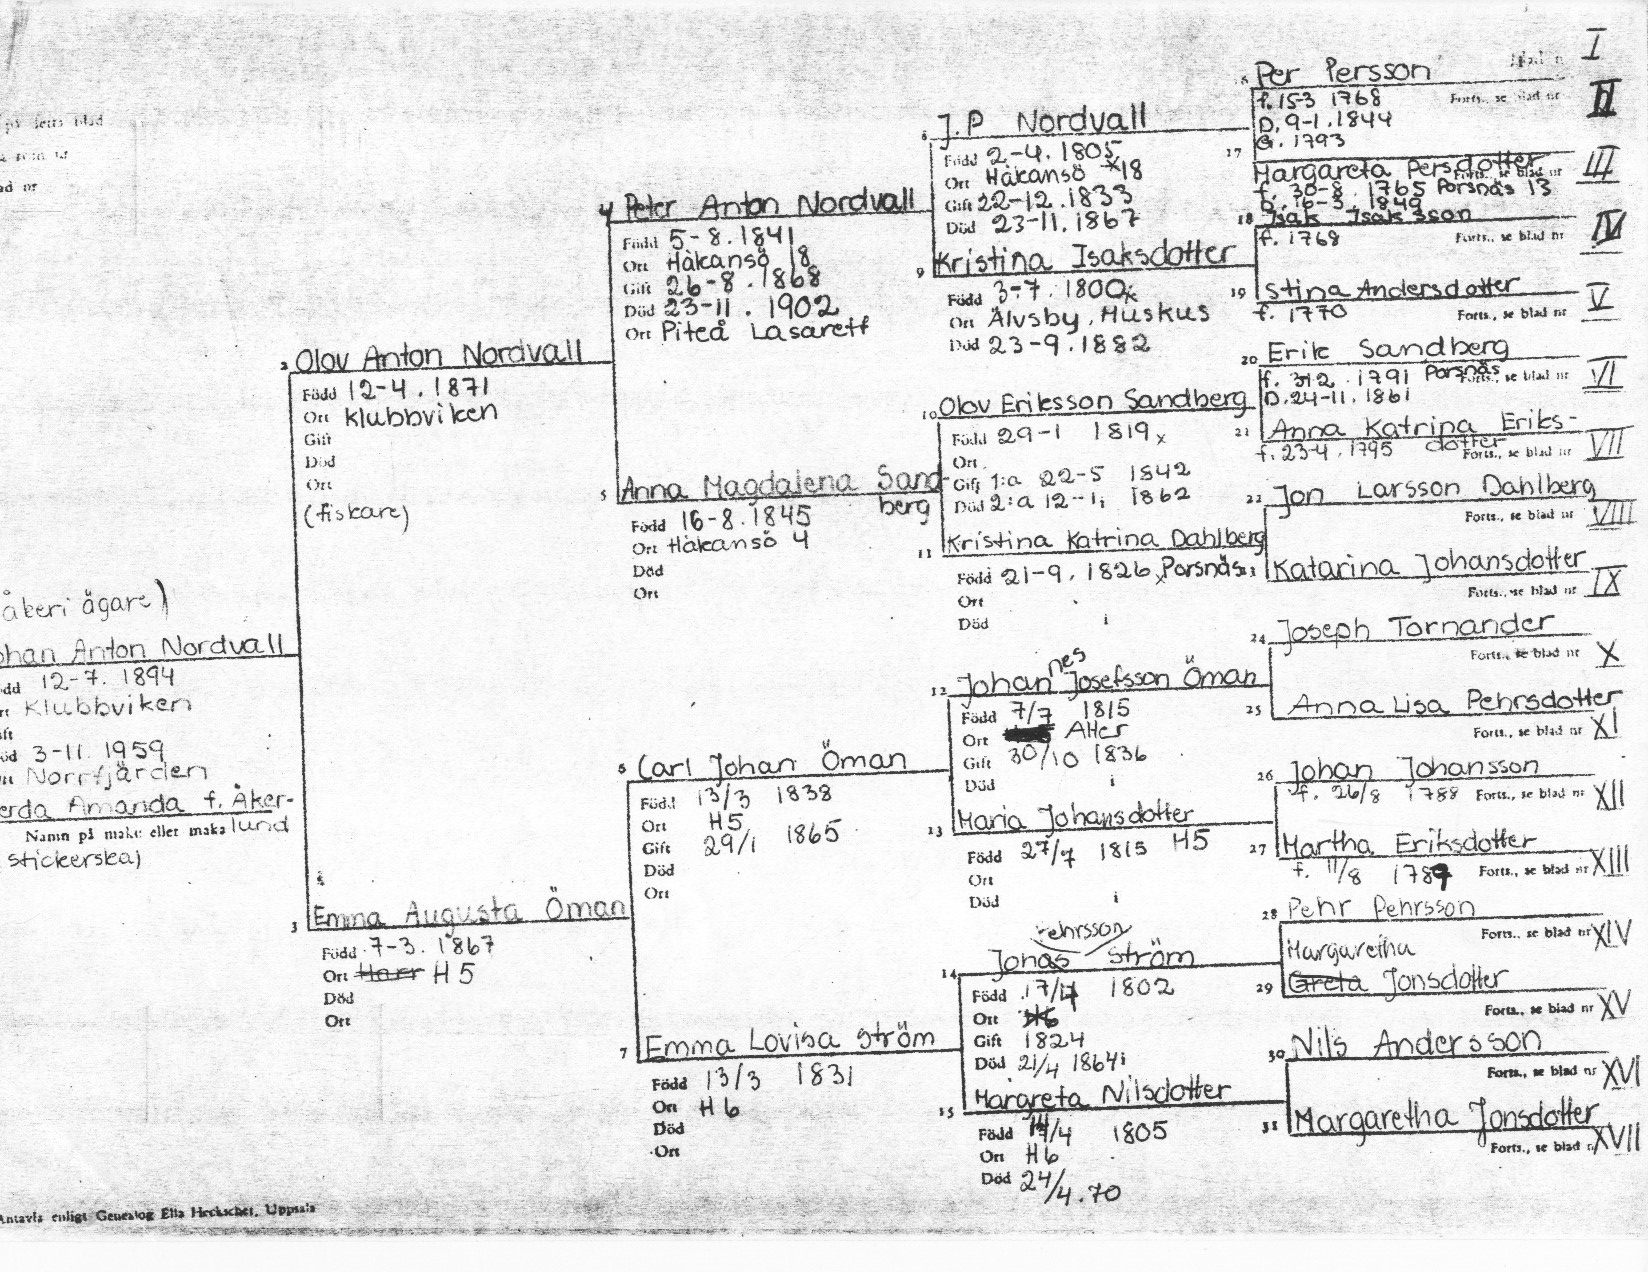 på detta blad
som nr
ad nr
åkeri ägare)
ohan Anton Nordvall
dd 12-7. 1894
rt Klubbviken
ift
öd 3-11. 1959
rt Norrfjärden
erda Amanda f. Åker-
lund
Namn på make eller maka
stickerska)
2 Olov Anton Nordvall
Född 12-4. 1871
Ort Klubbviken
Gift
Död
Ort
(fiskare)
3 Emma Augusta Öman
Född 7-3. 1867
Ort Harr H5
Död
Ort
4 Peter Anton Nordvall
Född 5-8. 1841
Ort Håkansö 18
Gift 26-8. 1868
Död 23-11. 1902
Ort Piteå Lasarett
5 Anna Magdalena Sand-
berg
Född 16-8. 1845
Ort Håkansö 4
Död
Ort
6 Carl Johan Öman
Född 13/3 1838
Ort H5
Gift 29/1 1865
Död
Ort
7 Emma Lovisa Ström
Född 13/3 1831
Ort H6
Död
Ort
8 J.P Nordvall
Född 2-4. 1805
Ort Håkansö *18
Gift 22-12. 1833
Död 23-11. 1867
9 Kristina Isaksdotter
Född 3-7. 1800x
Ort Älvsby, Muskus
Död 23-9. 1882
10 Olov Eriksson Sandberg
Född 29-1 1819x
Ort
Gift 1:a 22-5 1842
Död 2:a 12-1, 1862
11 Kristina Katrina Dahlberg
Född 21-9. 1826x Porsnäs
Ort
Död
12 Johannes Josefsson Öman
Född 7/7 1815
Ort Alter
Gift 30/10 1836
Död
13 Maria Johansdotter
Född 27/7 1815 H5
Ort
Död
Pehrsson
14 Jonas Ström
Född 17/4 1802
Ort
Gift 1824
Död 21/4 1864
15 Margreta Nilsdotter
Född 14/4 1805
Ort H6
Död 24/4.70
Blad n I
16 Per Persson
f. 15-3 1768 Forts., se blad nr II
D. 9-1. 1844
G. 1793
17 Margareta Persdotter
Forts., se blad nr III
f. 30-8. 1765 Porsnäs 13
D. 16-3. 1849
18 Isak Isaksson
f. 1768 Forts., se blad nr IV
19 Stina Andersdotter
f. 1770 Forts., se blad nr V
20 Erik Sandberg
f. 31-2. 1791 Porsnäs Forts., se blad nr VI
D. 24-11. 1861
21 Anna Katrina Eriks-
dotter
f. 23-4. 1795 Forts., se blad nr VII
22 Jon Larsson Dahlberg
Forts., se blad nr VIII
23 Katarina Johansdotter
Forts., se blad nr IX
24 Joseph Tornander
Forts., se blad nr X
25 Anna Lisa Pehrsdotter
Forts., se blad nr XI
26 Johan Johansson
f. 26/8 1788 Forts., se blad nr XII
27 Martha Eriksdotter
f. 11/8 1789 Forts., se blad nr XIII
28 Pehr Pehrsson
Forts., se blad nr XIV
Margaretha
29 Greta Jonsdotter
Forts., se blad nr XV
30 Nils Andersson
Forts., se blad nr XVI
31 Margaretha Jonsdotter
Forts., se blad n XVII
Antavla enligt Genealog Ella Heckscher, Uppsala